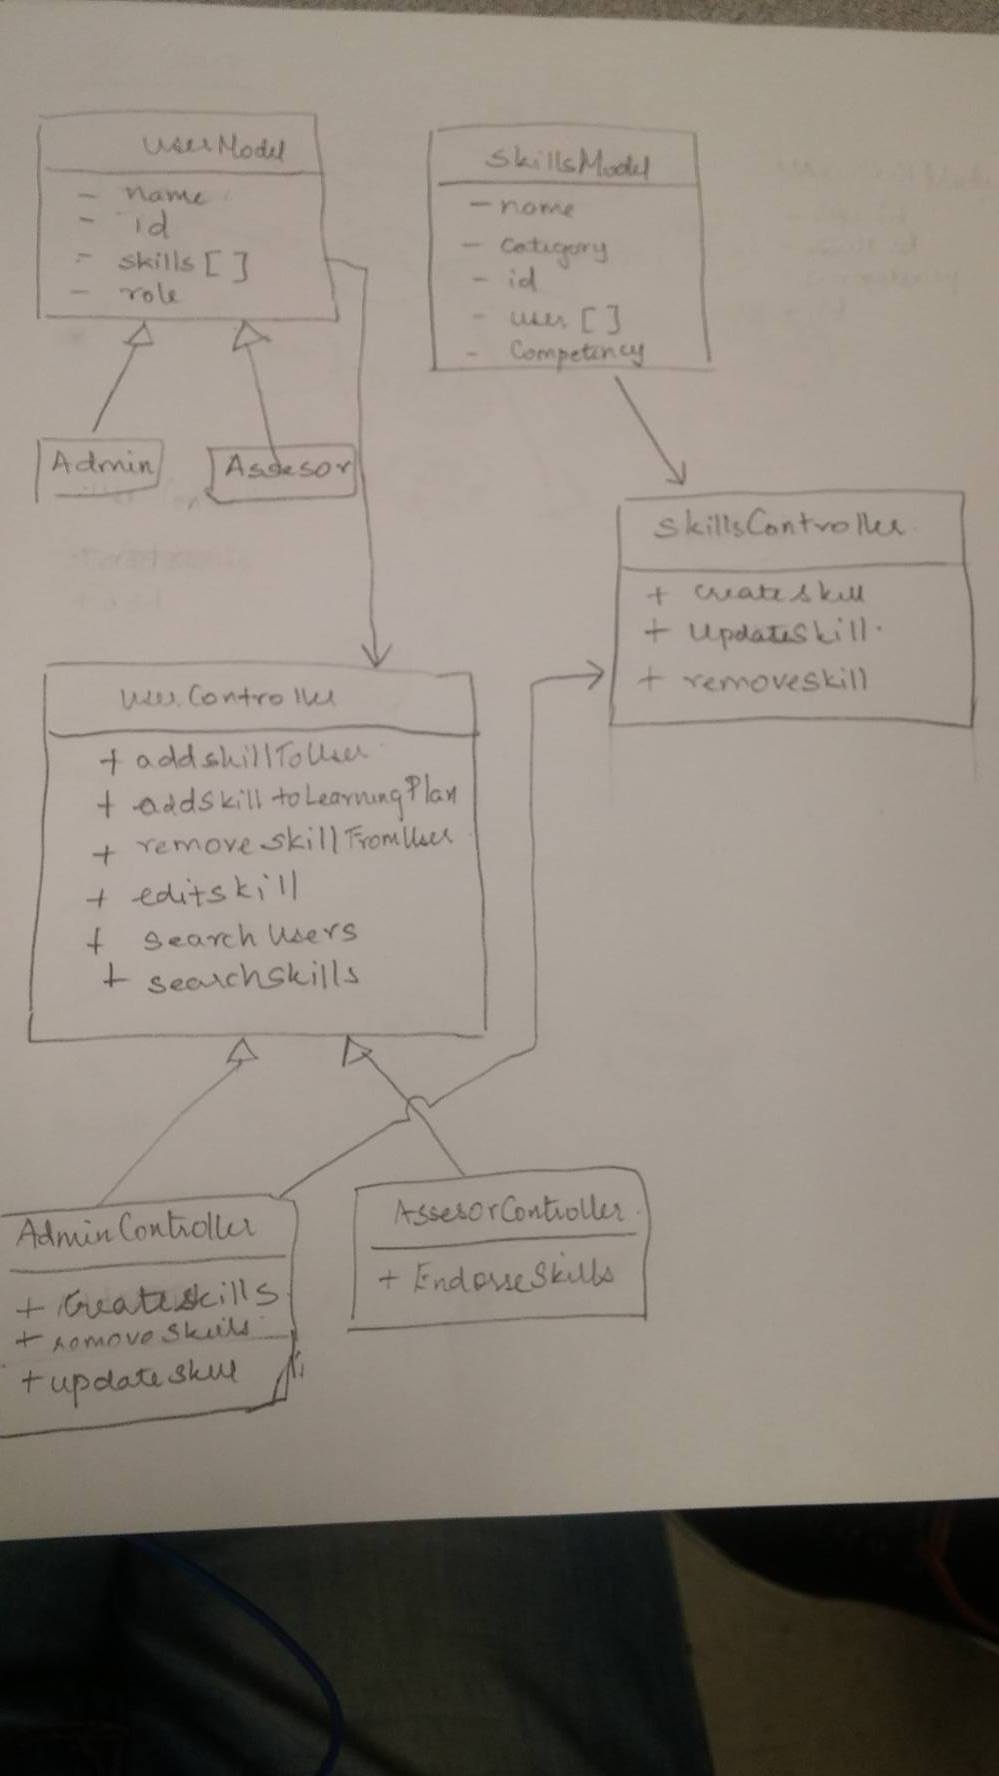 userModel
- name
- id
- skills [ ]
- role
Admin
Assesor
SkillsModel
- name
- Category
- id
- user [ ]
- Competency
SkillsController
+ createskill
+ updateSkill
+ removeskill
userController
+ addskillToUser
+ addSkilltoLearningPlan
+ removeskillFromUser
+ editskill
+ searchUsers
+ searchskills
AdminController
+ Createskills
+ removeskills
+ updateskill
AssesorController
+ EndorseSkills